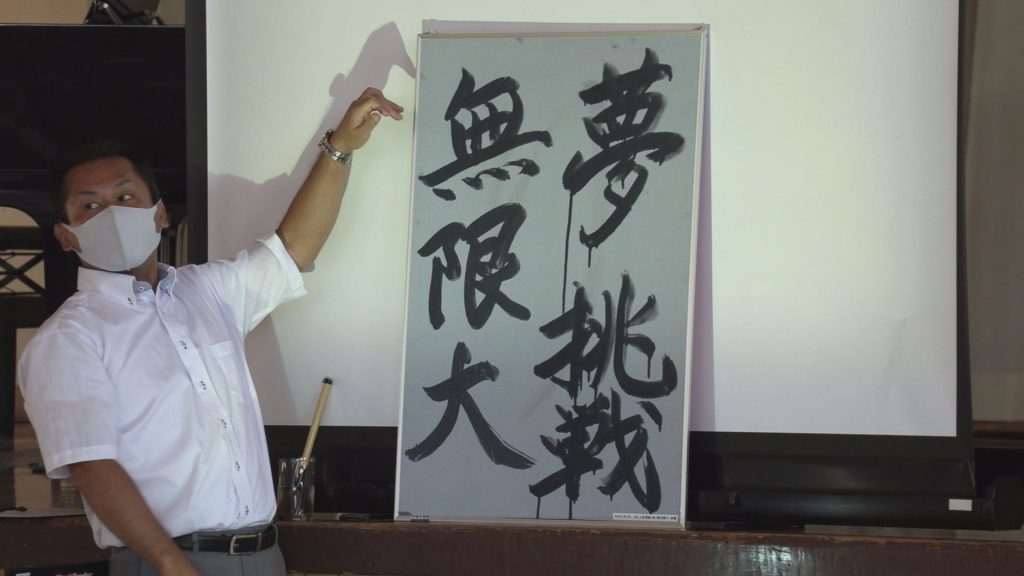 夢 挑戦
無限大